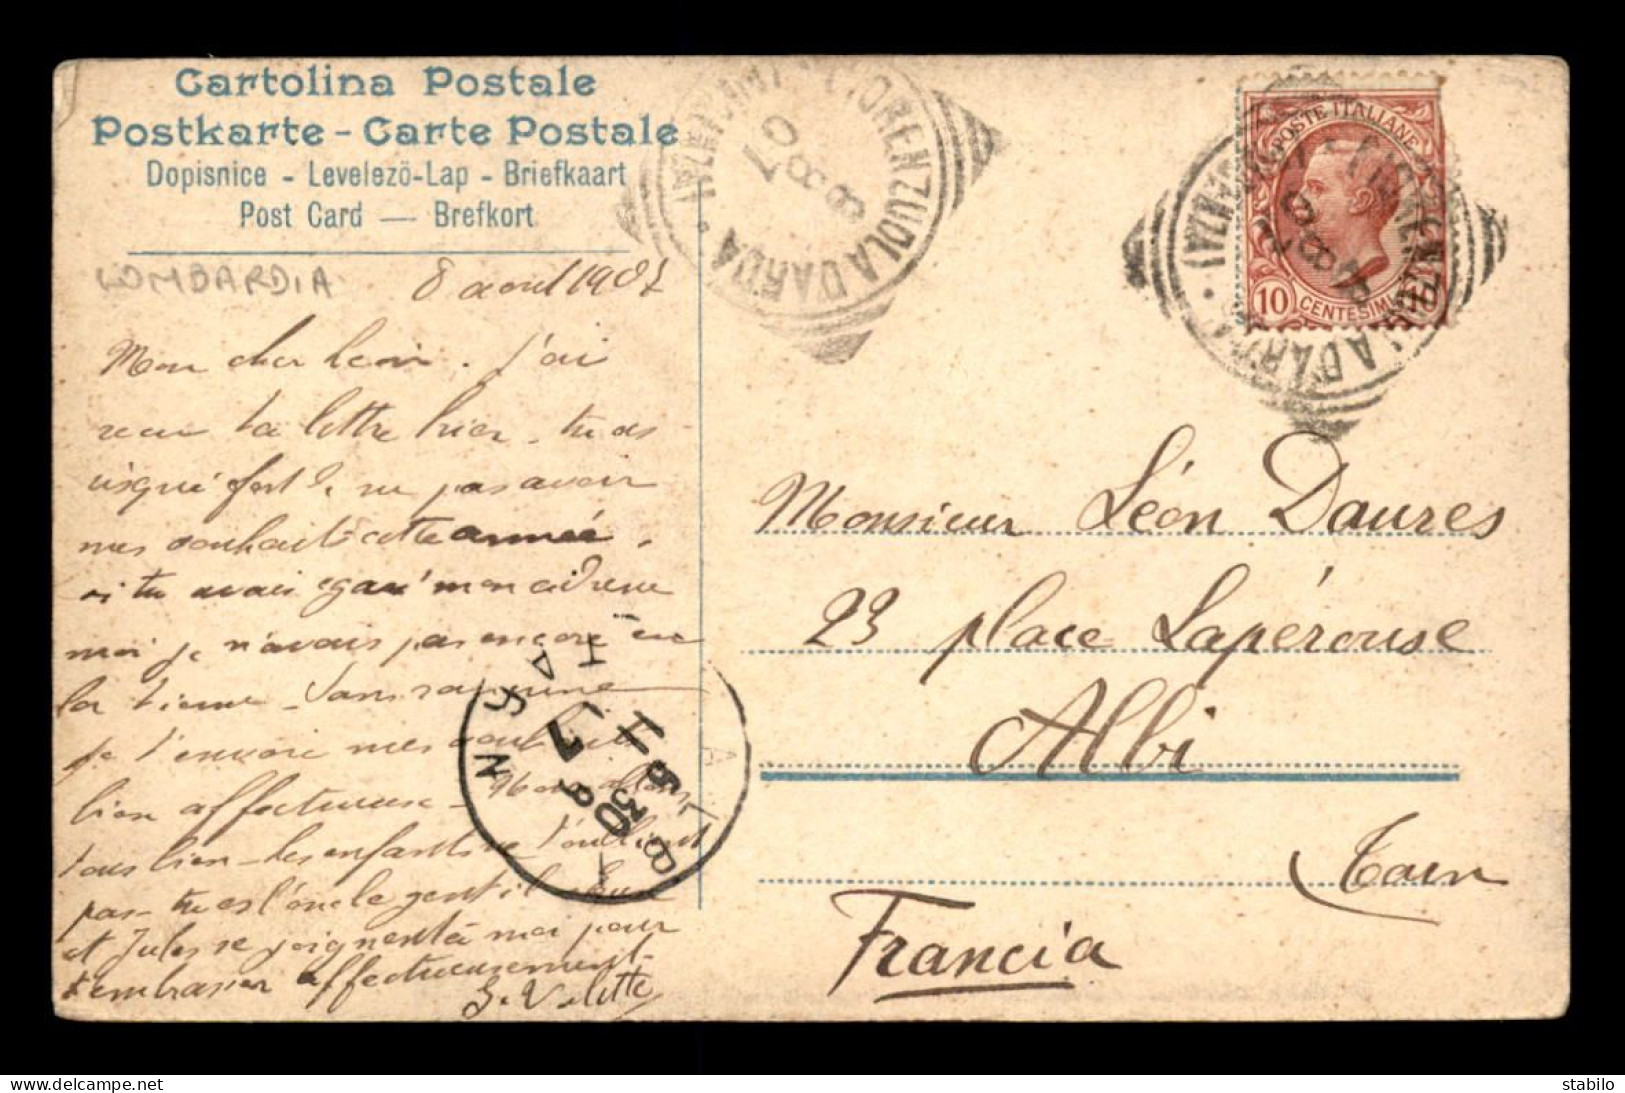 Cartolina Postale
Postkarte - Carte Postale
Dopisnice - Levelezö-Lap - Briefkaart
Post Card — Brefkort
LOMBARDIA
8 août 1907
Mon cher Léon. J'ai
reçu ta lettre hier. tu as
risqué fort de ne pas avoir
mes souhaits cette année,
si tu avais égaré mon adresse
moi je n'avais pas encore eu
la tienne. Sans rancune
je t'envoie mes
bien affectueuse. Nous allons
tous bien. les enfants ne t'oublient
pas. tu es l'oncle gentil
et Jules se joignent à moi pour
t'embrasser affectueusement.
FIORENZUOLA D'ARDA
(PIACENZA)
8 8 07
POSTE ITALIANE
10 CENTESIMI
FIORENZUOLA D'ARDA
(PIACENZA)
8 8 07
Monsieur Léon Daures
23 place Lapérouse
Albi
Tarn
Francia
ALBI
TARN
11 8
30
stabilo